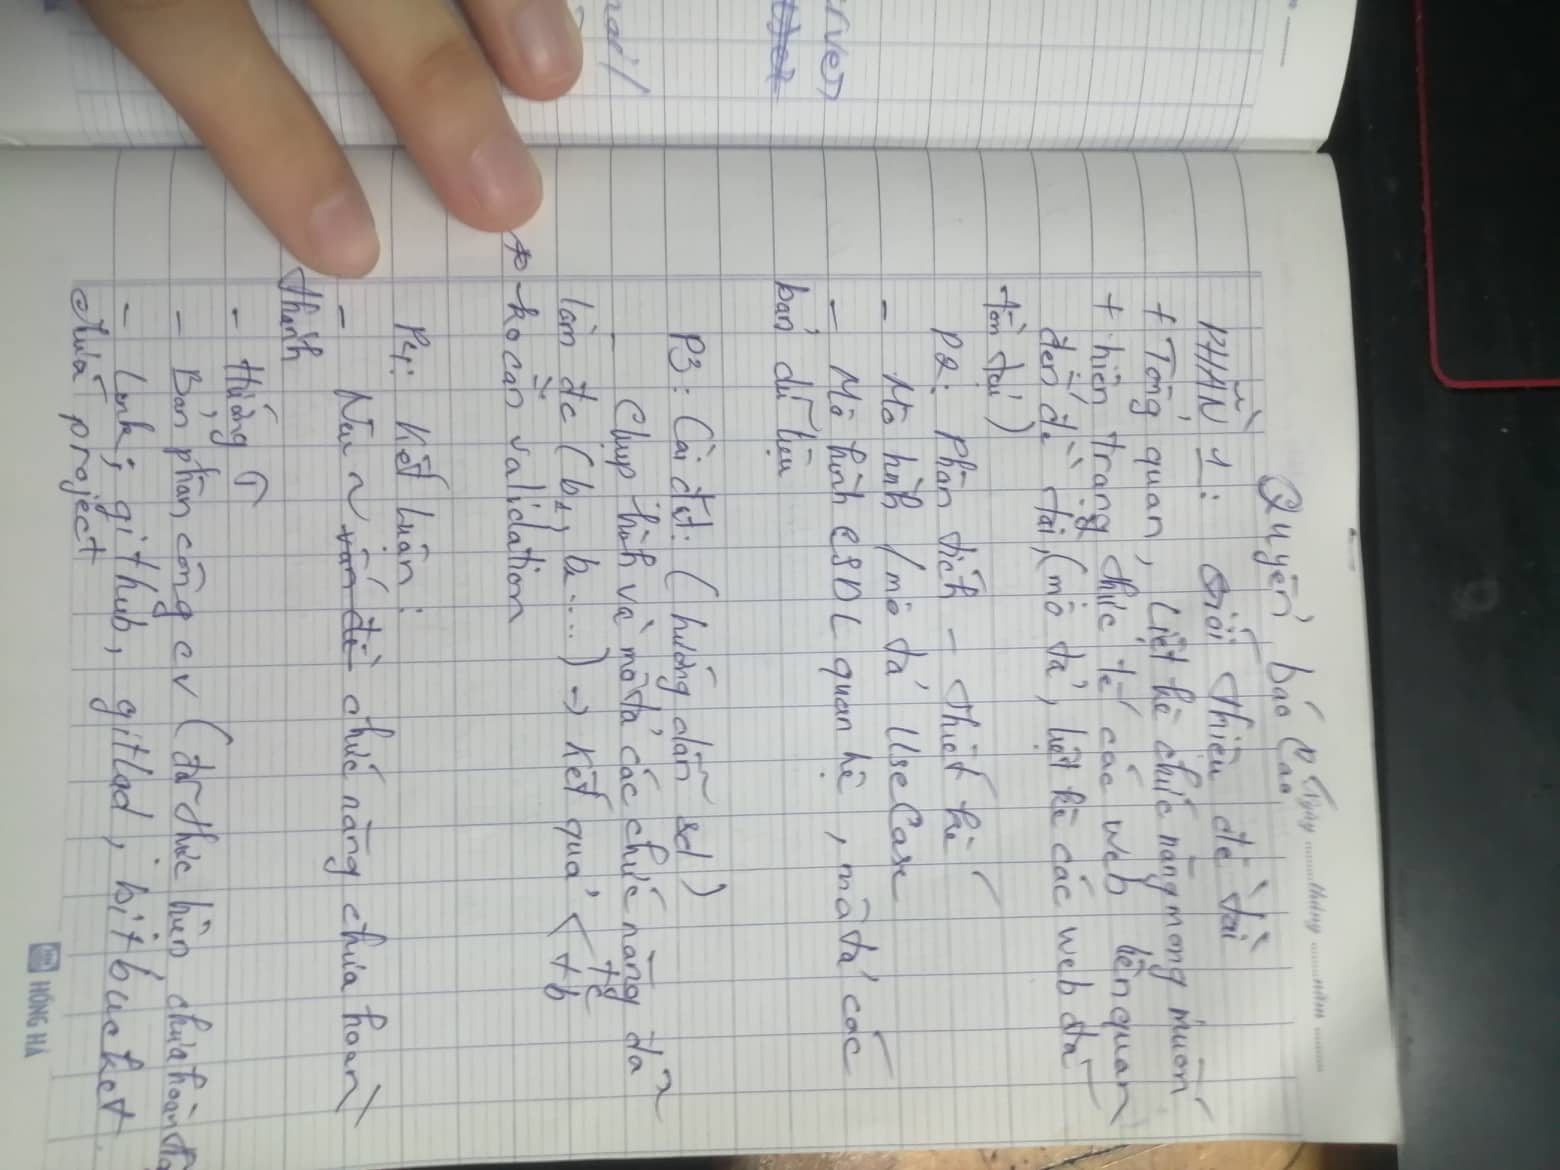 Ngày ......... tháng ......... năm .........
Quyển báo cáo
PHẦN 1: Giới thiệu đề tài
+ Tổng quan, Liệt kê chức năng mong muốn
+ hiện trạng thực tế các web liên quan
đến đề tài, (mô tả, liệt kê các web đã
tồn tại)
P2: Phân tích - thiết kế
- Mô hình / mô tả UseCase
- Mô hình CSDL quan hệ, mô tả các
bản dữ liệu
P3: Cài đặt: (hướng dẫn sd)
- Chụp hình và mô tả các chức năng đã
làm đc (b1, b2....) → kết quả < tc
tb
ko cần validation
P4: Kết luận:
- Nêu ~ vấn đề chức năng chưa hoàn
thành
- Hướng
- Bản phân công cv (đã thực hiện chưa hoàn
- Link: github, gitlad, bitbucket
chứa project
HỒNG HÀ
rver